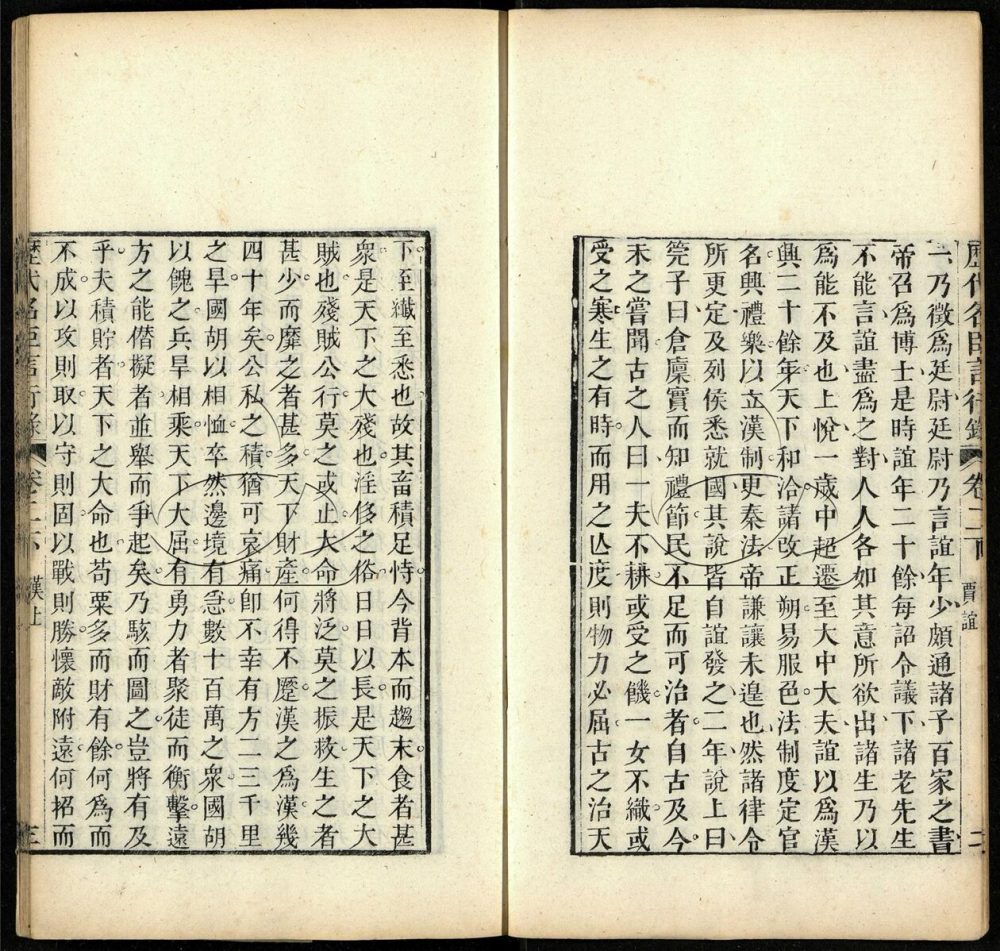 歷代名臣言行錄 卷二下 賈誼 二
一乃徵爲廷尉廷尉乃言誼年少頗通諸子百家之書
帝召爲博士是時誼年二十餘每詔令議下諸老先生
不能言誼盡爲之對人人各如其意所欲出諸生乃以
爲能不及也上悅一歲中超遷至大中大夫誼以爲漢
興二十餘年天下和洽諸改正朔易服色法制度定官
名興禮樂以立漢制更秦法帝謙讓未遑也然諸律令
所更定及列侯悉就國其說皆自誼發之二年說上曰
筦子曰倉廩實而知禮節民不足而可治者自古及今
未之嘗聞古之人曰一夫不耕或受之饑一女不織或
受之寒生之有時而用之亾度則物力必屈古之治天
下至纖至悉也故其畜積足恃今背本而趨末食者甚
衆是天下之大殘也淫侈之俗日日以長是天下之大
賊也殘賊公行莫之或止大命將泛莫之振救生之者
甚少而靡之者甚多天下財產何得不蹷漢之爲漢幾
四十年矣公私之積猶可哀痛卽不幸有方二三千里
之旱國胡以相恤卒然邊境有急數十百萬之衆國胡
以餽之兵旱相乘天下大屈有勇力者聚徒而衡擊遠
方之能僭擬者並舉而爭起矣乃駭而圖之豈將有及
乎夫積貯者天下之大命也苟粟多而財有餘何爲而
不成以攻則取以守則固以戰則勝懷敵附遠何招而
歷代名臣言行錄 卷二下 漢 三